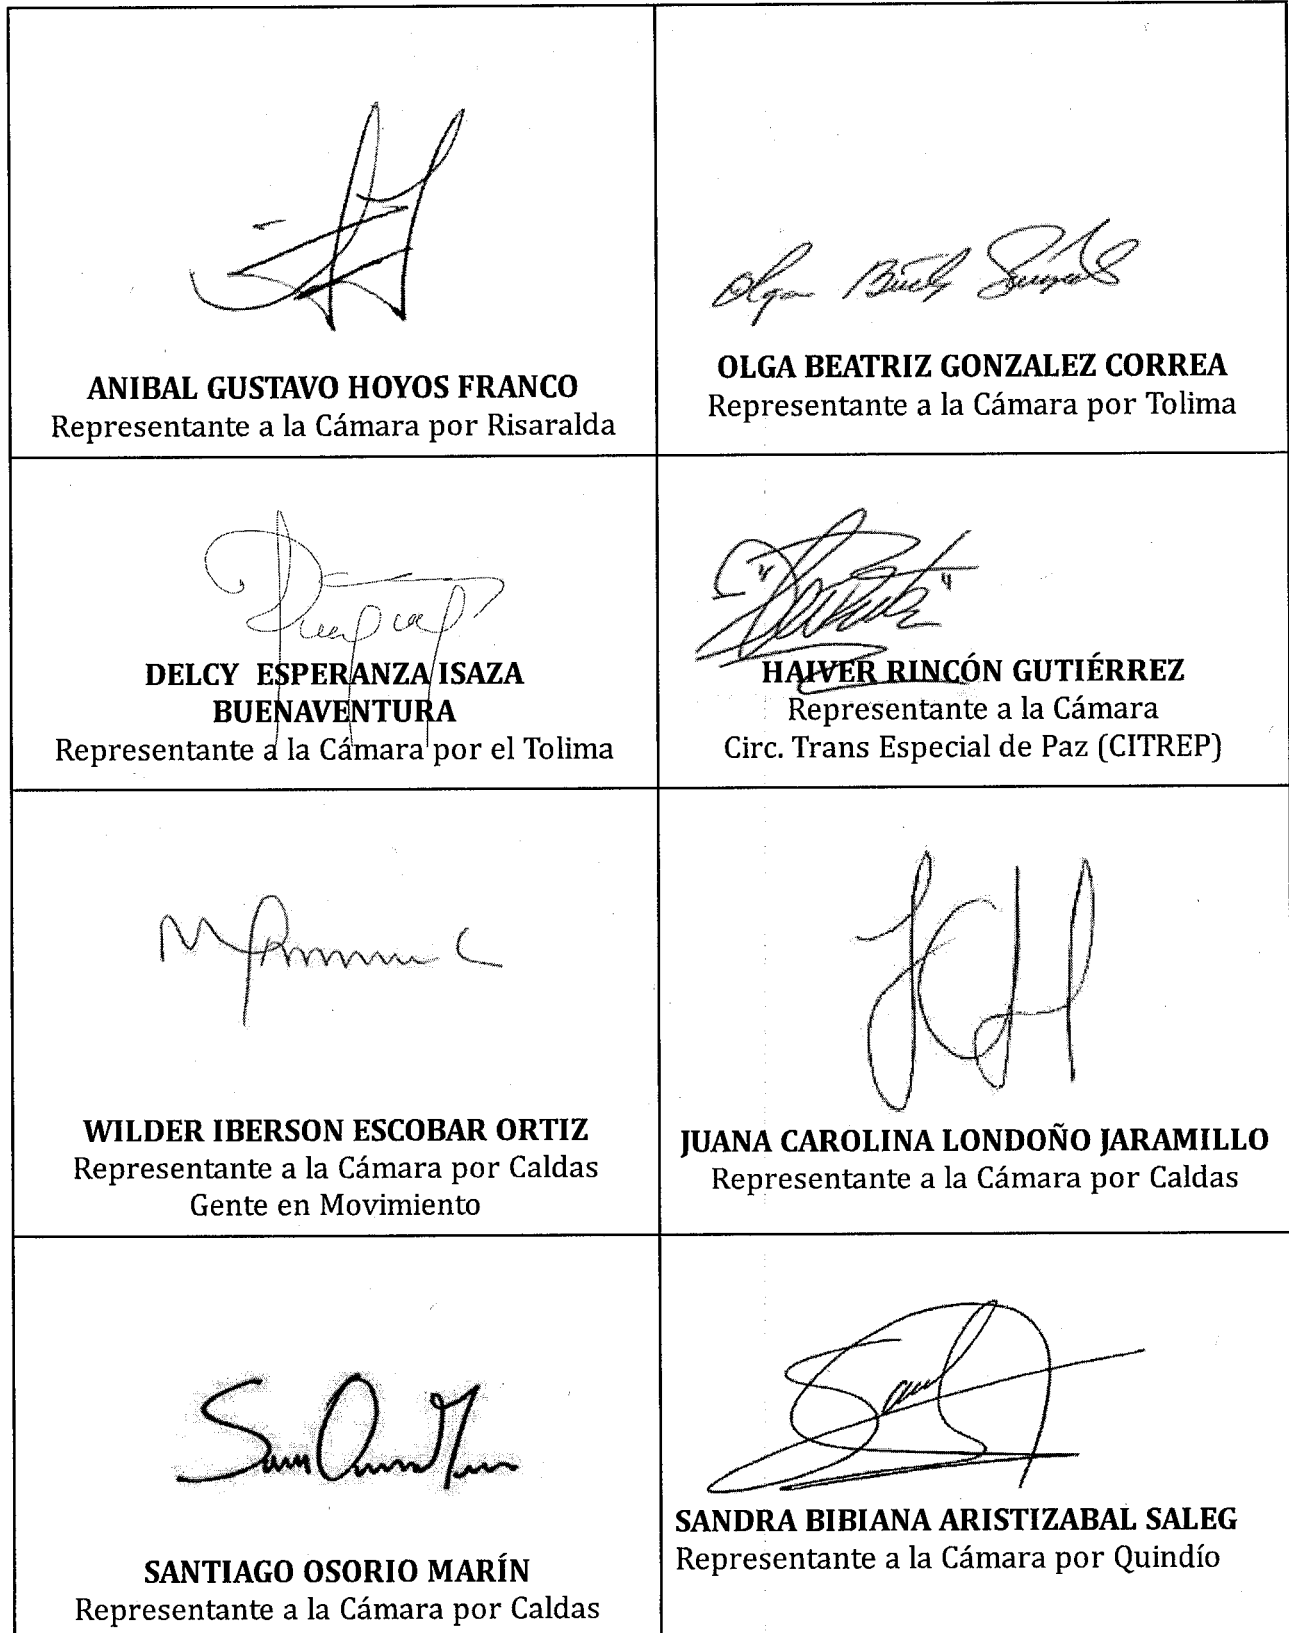 ANIBAL GUSTAVO HOYOS FRANCO
Representante a la Cámara por Risaralda
OLGA BEATRIZ GONZALEZ CORREA
Representante a la Cámara por Tolima
DELCY ESPERANZA ISAZA
BUENAVENTURA
Representante a la Cámara por el Tolima
HAIVER RINCÓN GUTIÉRREZ
Representante a la Cámara
Circ. Trans Especial de Paz (CITREP)
WILDER IBERSON ESCOBAR ORTIZ
Representante a la Cámara por Caldas
Gente en Movimiento
JUANA CAROLINA LONDOÑO JARAMILLO
Representante a la Cámara por Caldas
SANTIAGO OSORIO MARÍN
Representante a la Cámara por Caldas
SANDRA BIBIANA ARISTIZABAL SALEG
Representante a la Cámara por Quindío